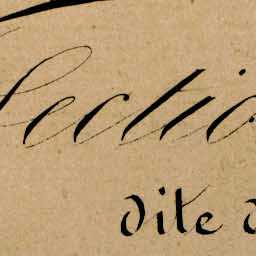 Sectio
dite d